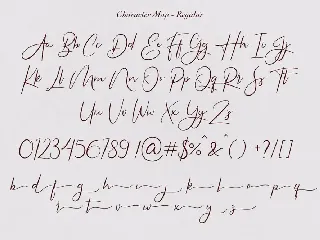 Character Map - Regular
Aa Bb Cc Dd Ee Ff Gg Hh Ii Jj
Kk Ll Mm Nn Oo Pp Qq Rr Ss Tt
Uu Vv Ww Xx Yy Zz
0123456789 !@#$%^&^() +?/[]
b d f g h i j k l o p q
r t v w x y z